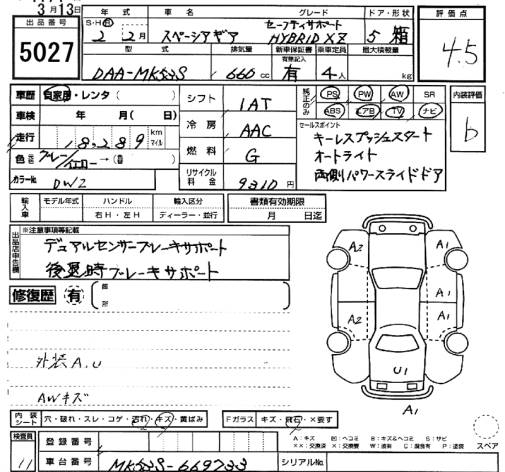 3月13日
出品番号 年式 車名 グレード ドア・形状 評価点
5027 S・H 2年 2月 スペーシアギア セーフティサポート HYBRID XZ 5 箱 4.5
型式 排気量 新車保証書 乗車定員 最大積載量
有無記入
DAA-MK53S 660 cc 有 4人 kg
車歴 自家用・レンタ( )
車検 年 月( 日)
走行 18,289 km マイル
色 グレー/イエロー→( )
カラーNo. DW2
シフト 1AT
冷房 AAC
燃料 G
リサイクル料金 9310円
純正のみ PS PW AW SR
ABS エアB TV ナビ
セールスポイント
キーレスプッシュスタート
オートライト
両側パワースライドドア
内装評価
b
輸入車 モデル年式 ハンドル 輸入区分 書類有効期限
右H・左H ディーラー・並行 月 日迄
出品店申告欄 ※注意事項等記載
デュアルセンサーブレーキサポート
後退時ブレーキサポート
修復歴 有
外装A.U
AWキズ
A2 A1
A1
A2 A1
U1
A1
内装シート 穴・破れ・スレ・コゲ・汚れ・キズ・黄ばみ Fガラス キズ・飛石・×要す
スペア
検査員 11
登録番号
車台番号 MK53S-669733 シリアルNo.